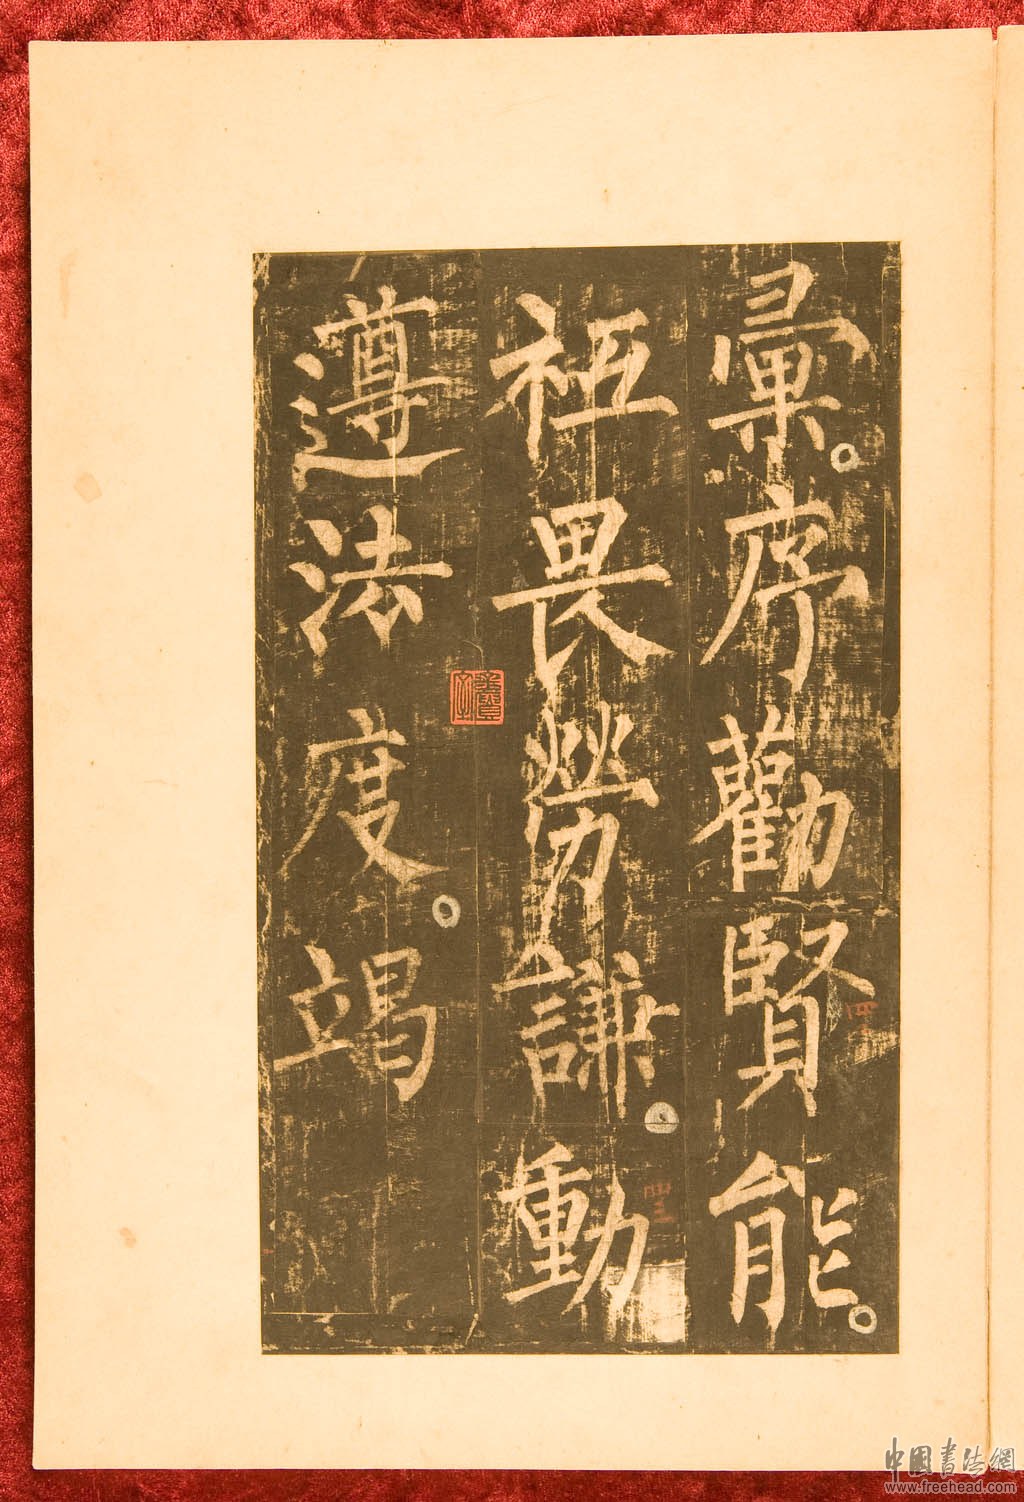 彙序勸賢能
祗畏勞謙動
遵法度竭
中国书法網
www.freehead.com